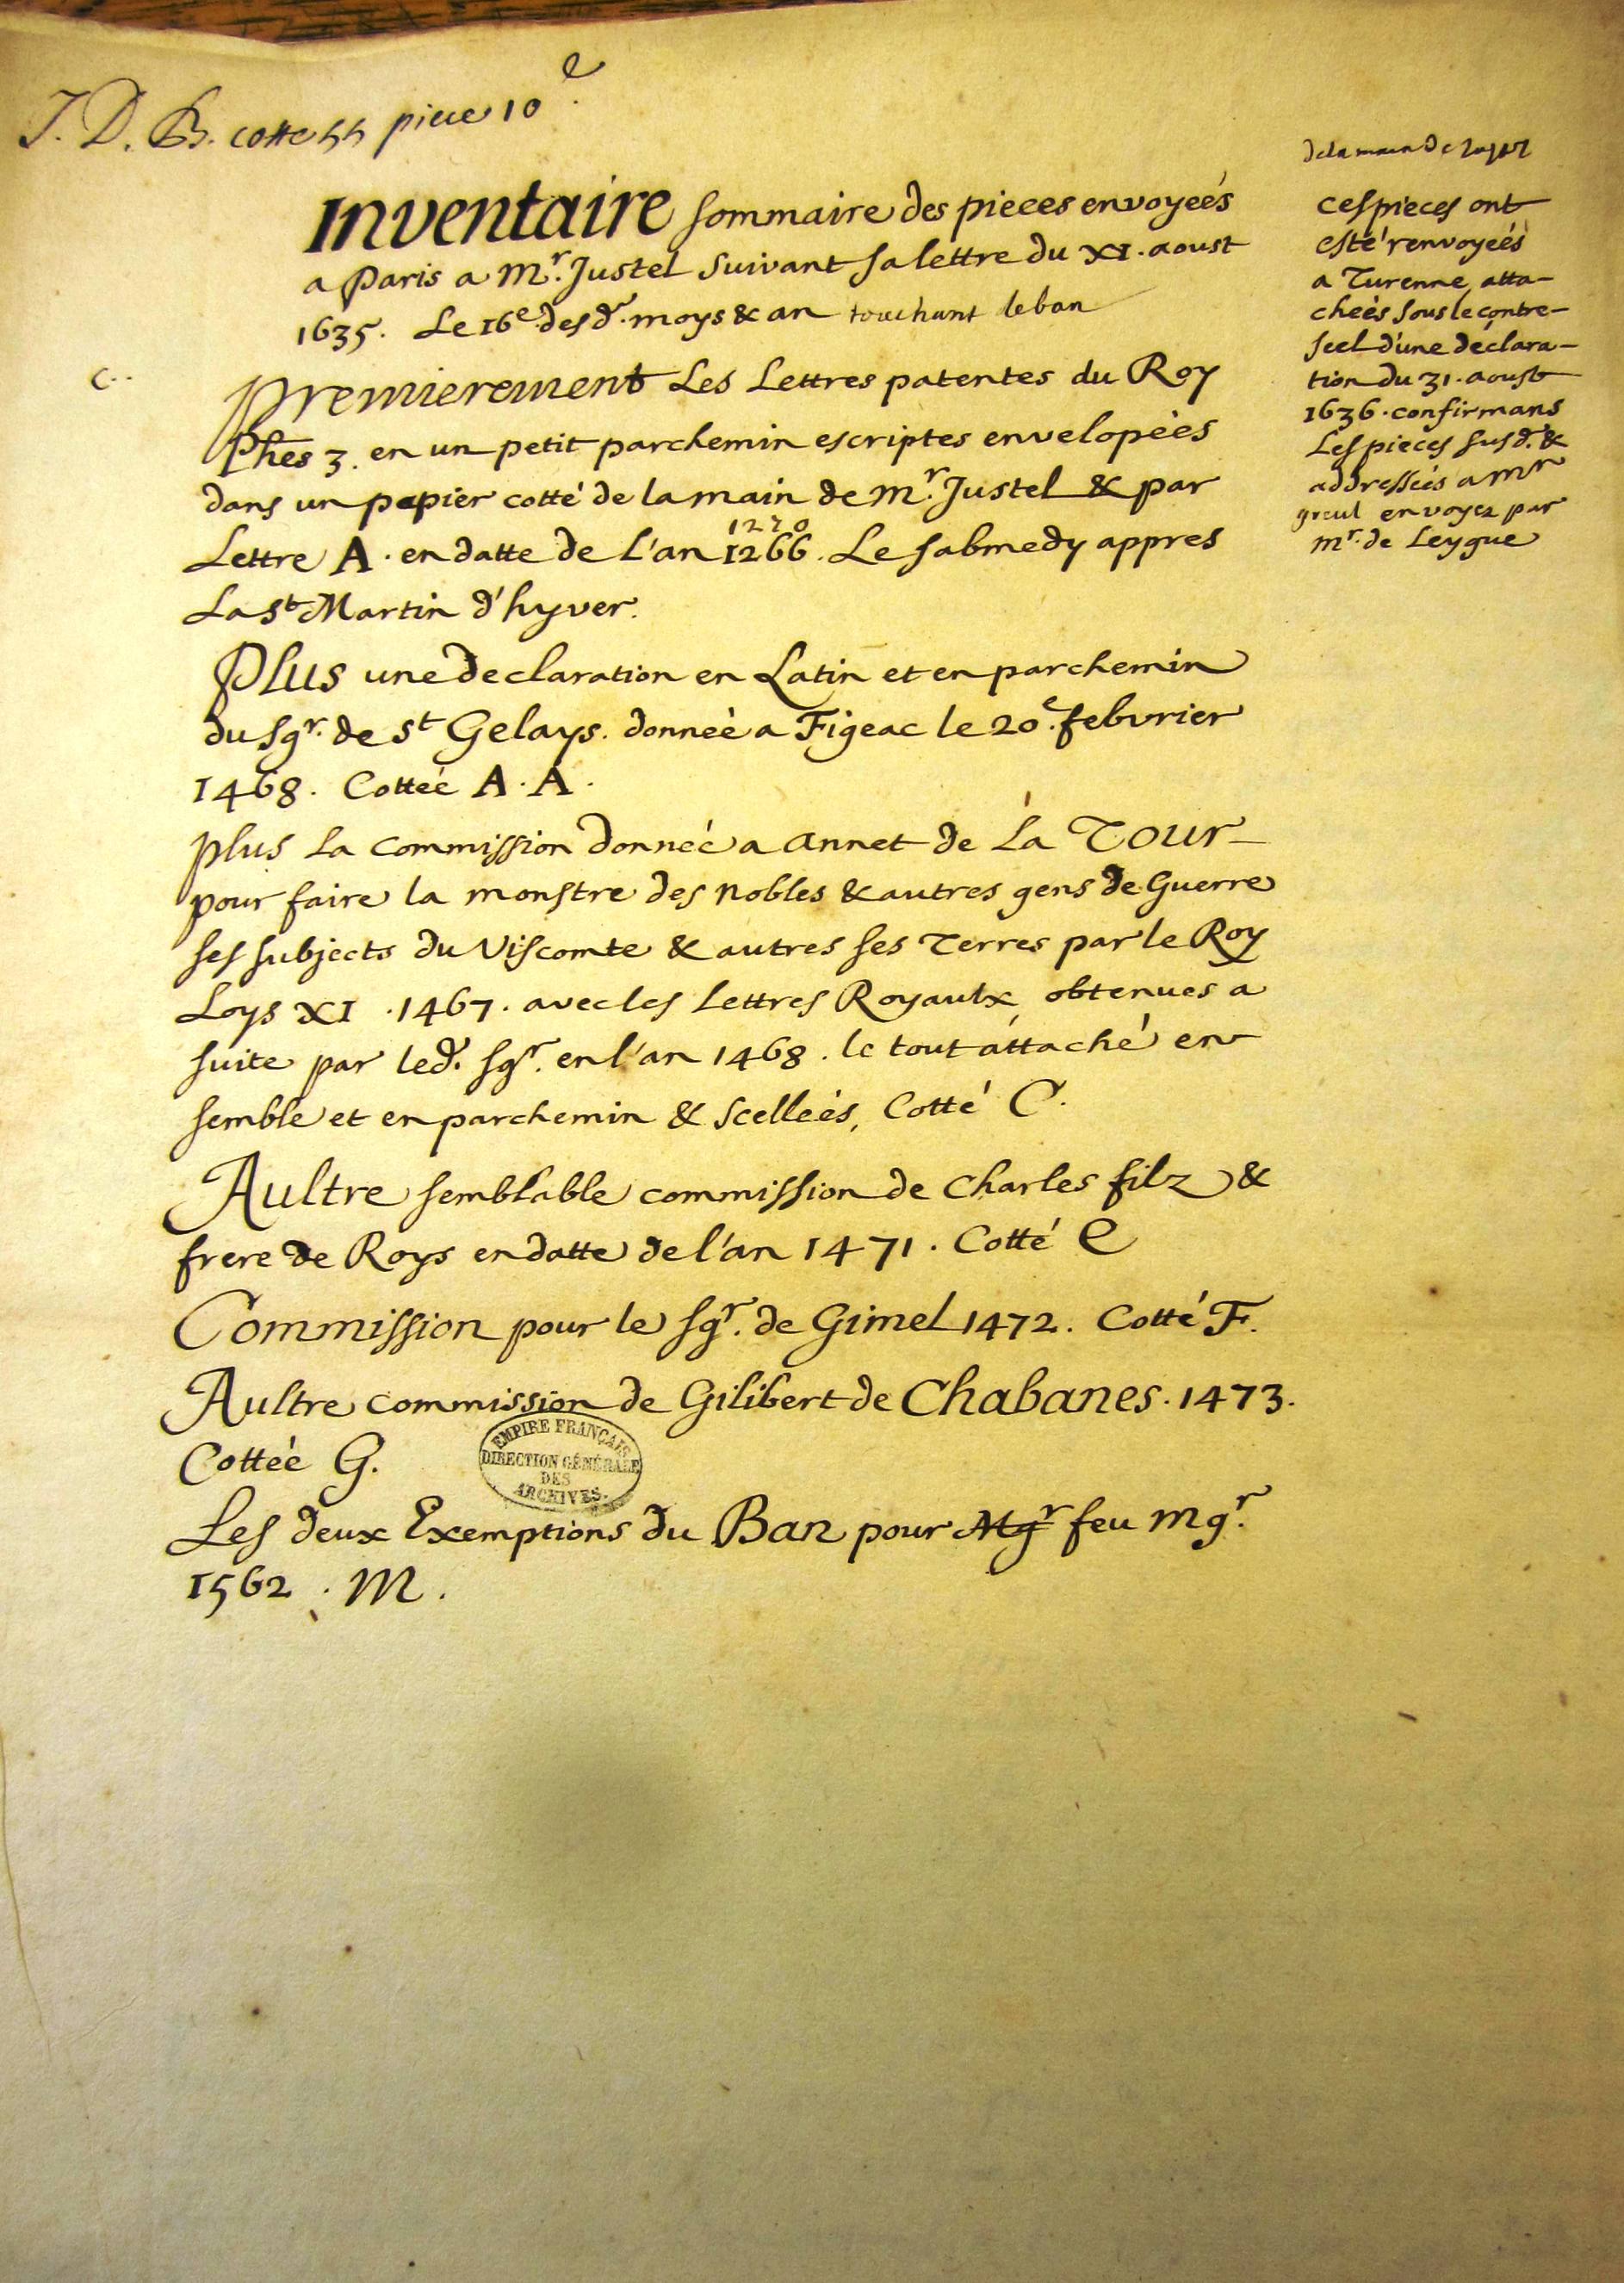 J. D. B. cotte hh piece 10e
Inventaire sommaire des pieces envoyeés
a Paris a Mr. Justel suivant sa lettre du XI. aoust
1635. Le 16e. desd. moys & an touchant le ban
C..
Premierement Les Lettres patentes du Roy
Phes 3. en un petit parchemin escriptes envelopeès
dans un papier cotté de la main de Mr. Justel & par
1270
Lettre A. en datte de l'an 1266. Le sabmedy appres
La St Martin d'hyver.
Plus une declaration en Latin et en parchemin
du sgr. de St Gelays. donneè a Figeac le 20e. febvrier
1468. Cotteé A. A.
plus La commission donneé a Annet de La Tour
pour faire la monstre des Nobles & autres gens de Guerre
ses subjects du Viscomte & autres ses Terres par le Roy
Loys XI. 1467. avec les Lettres Royaulx obtenues a
suite par led. sgr. en l'an 1468. le tout attaché en
semble et en parchemin & scelleés, Cotté C.
Aultre semblable commission de Charles filz &
frere de Roys en datte de l'an 1471. Cotté E
Commission pour le sgr. de Gimel 1472. Cotté F.
Aultre commission de Gilibert de Chabanes. 1473.
Cotteè G.
Les deux Exemptions du Ban pour Mgr feu Mgr.
1562. M.
de la main de
Ces pieces ont
esté renvoyeés
a Turenne atta-
cheès sous le contre-
scel d'une déclara-
tion du 31. aoust
1636. confirmans
Les pieces susd. &
addresseés a Mr
greul envoyez par
Mr. de Leygue
EMPIRE FRANÇAIS
DIRECTION GÉNÉRALE
DES
ARCHIVES.